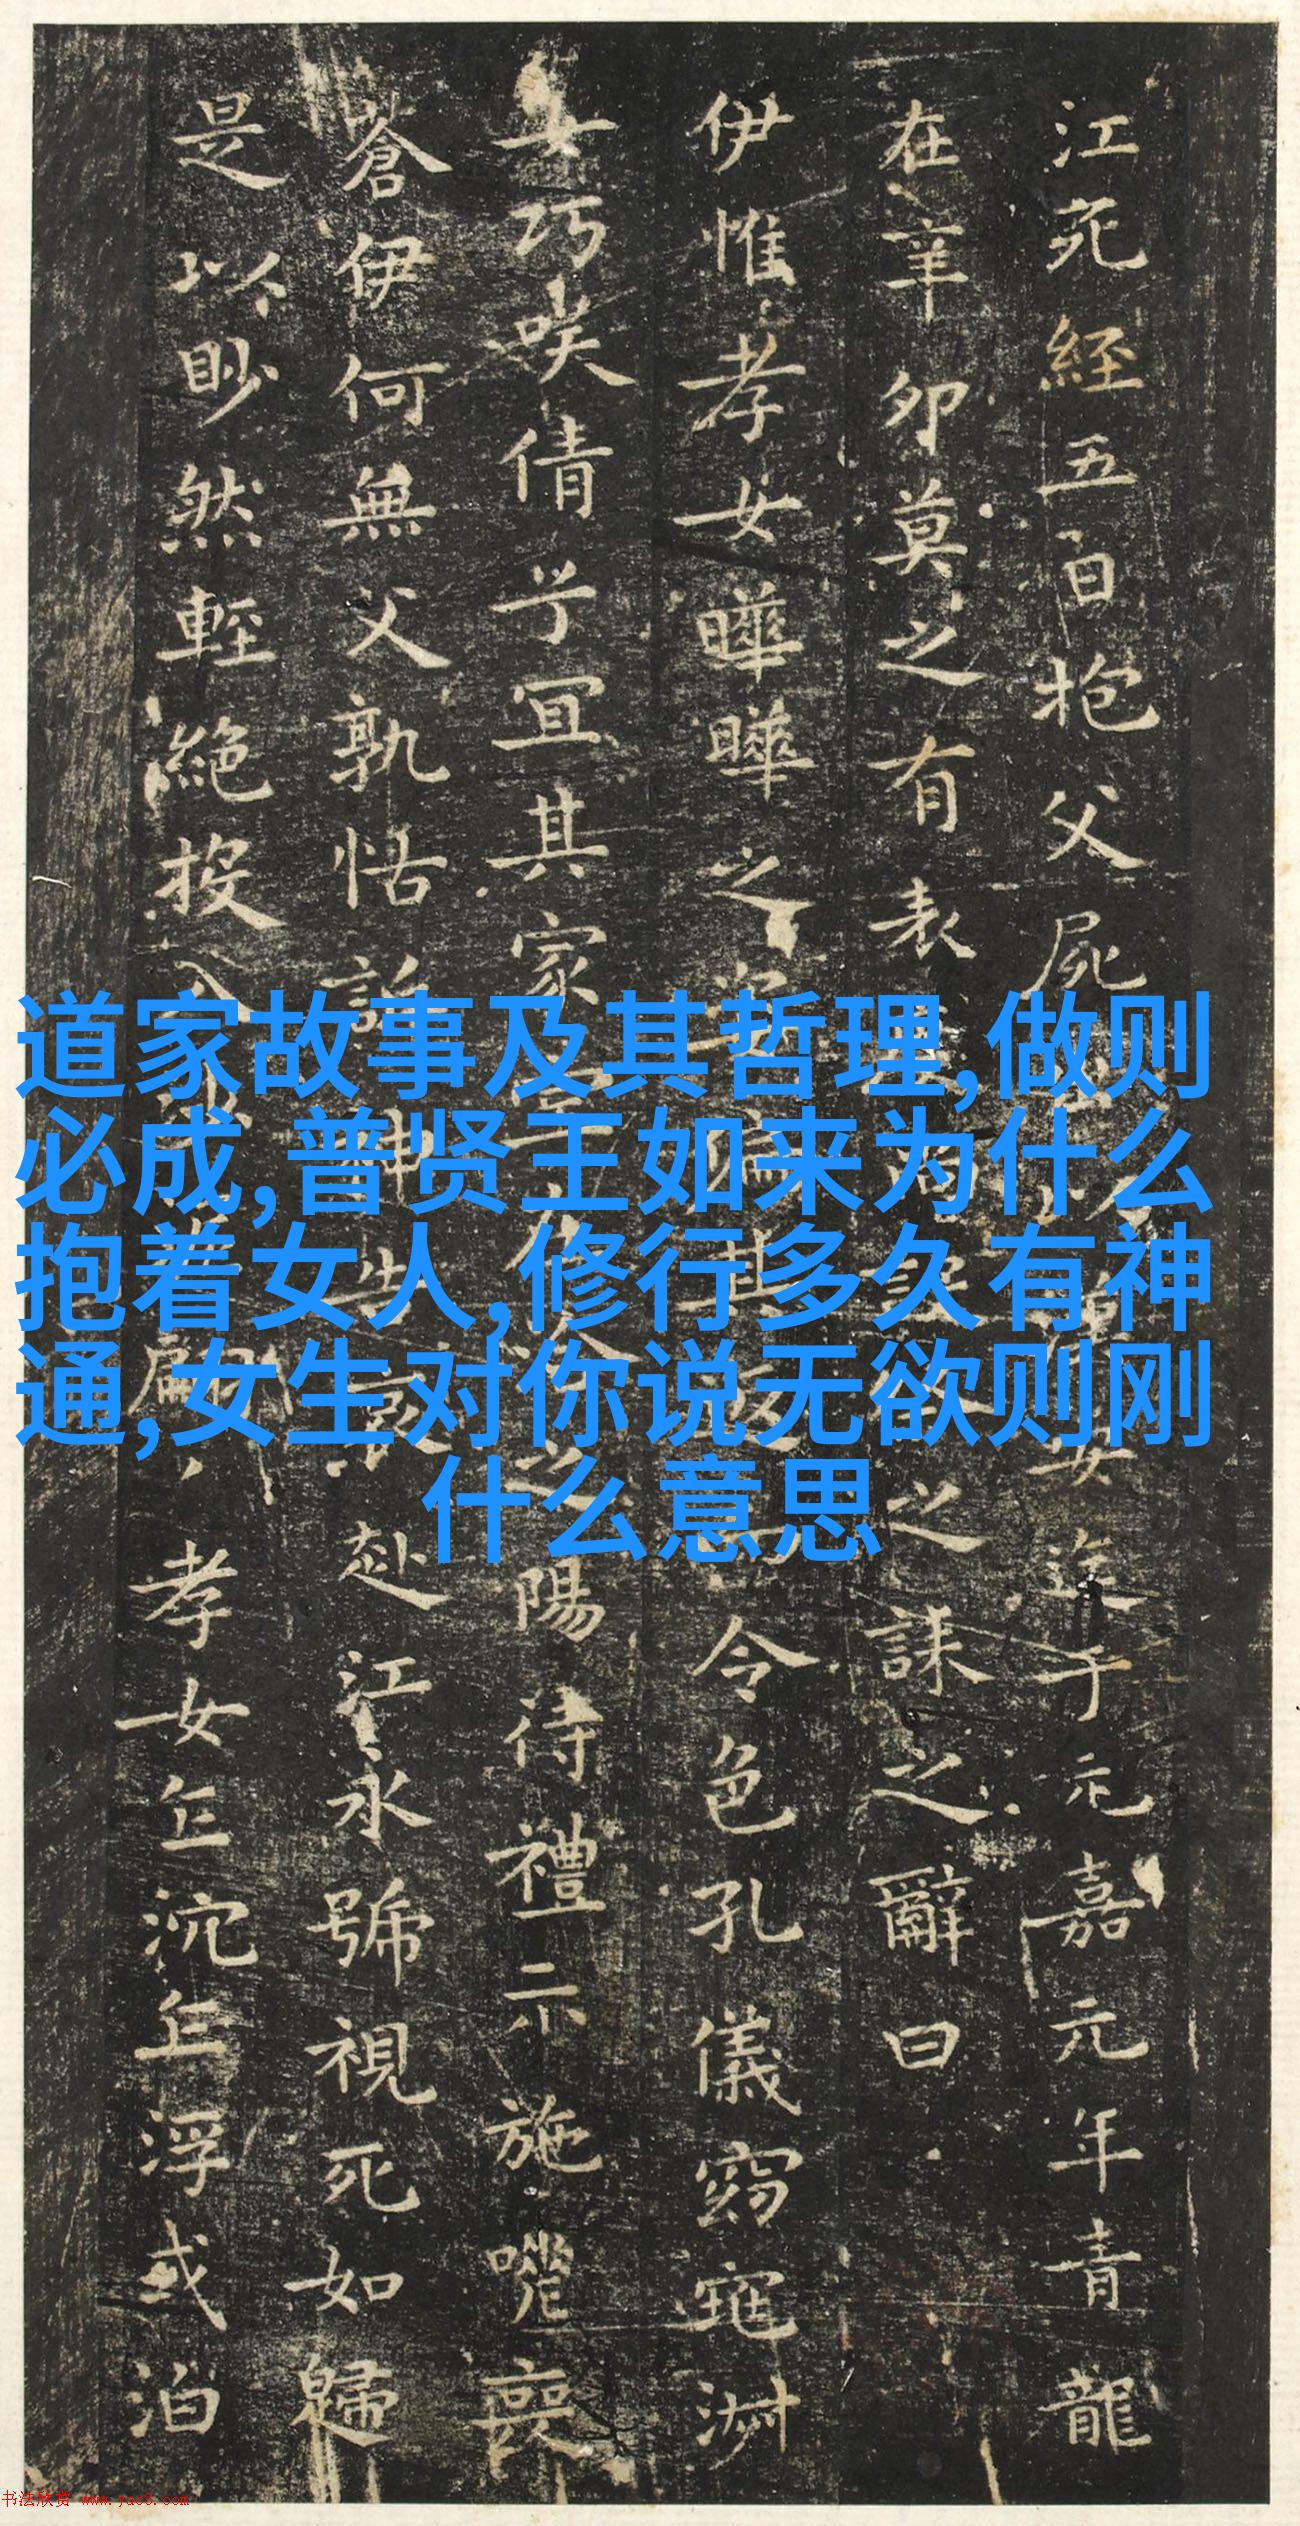 江死經五日抱父屍出
于元嘉元年青龍
在辛卯莫之有表
之誄之辭曰
伊惟孝女曄曄之
令色孔儀窈窕淑
女巧笑倩兮宜其家
陽待禮未施嗟喪
蒼伊何無父孰怙訴神告哀赴江永號視死如歸
是以眇然輕絕投入
孝女乍沉乍浮或泊
道家故事及其哲理,做则
必成,普贤王如来为什么
抱着女人,修行多久有神
通,女生对你说无欲则刚
什么意思
书法欣赏 www.yac8.com